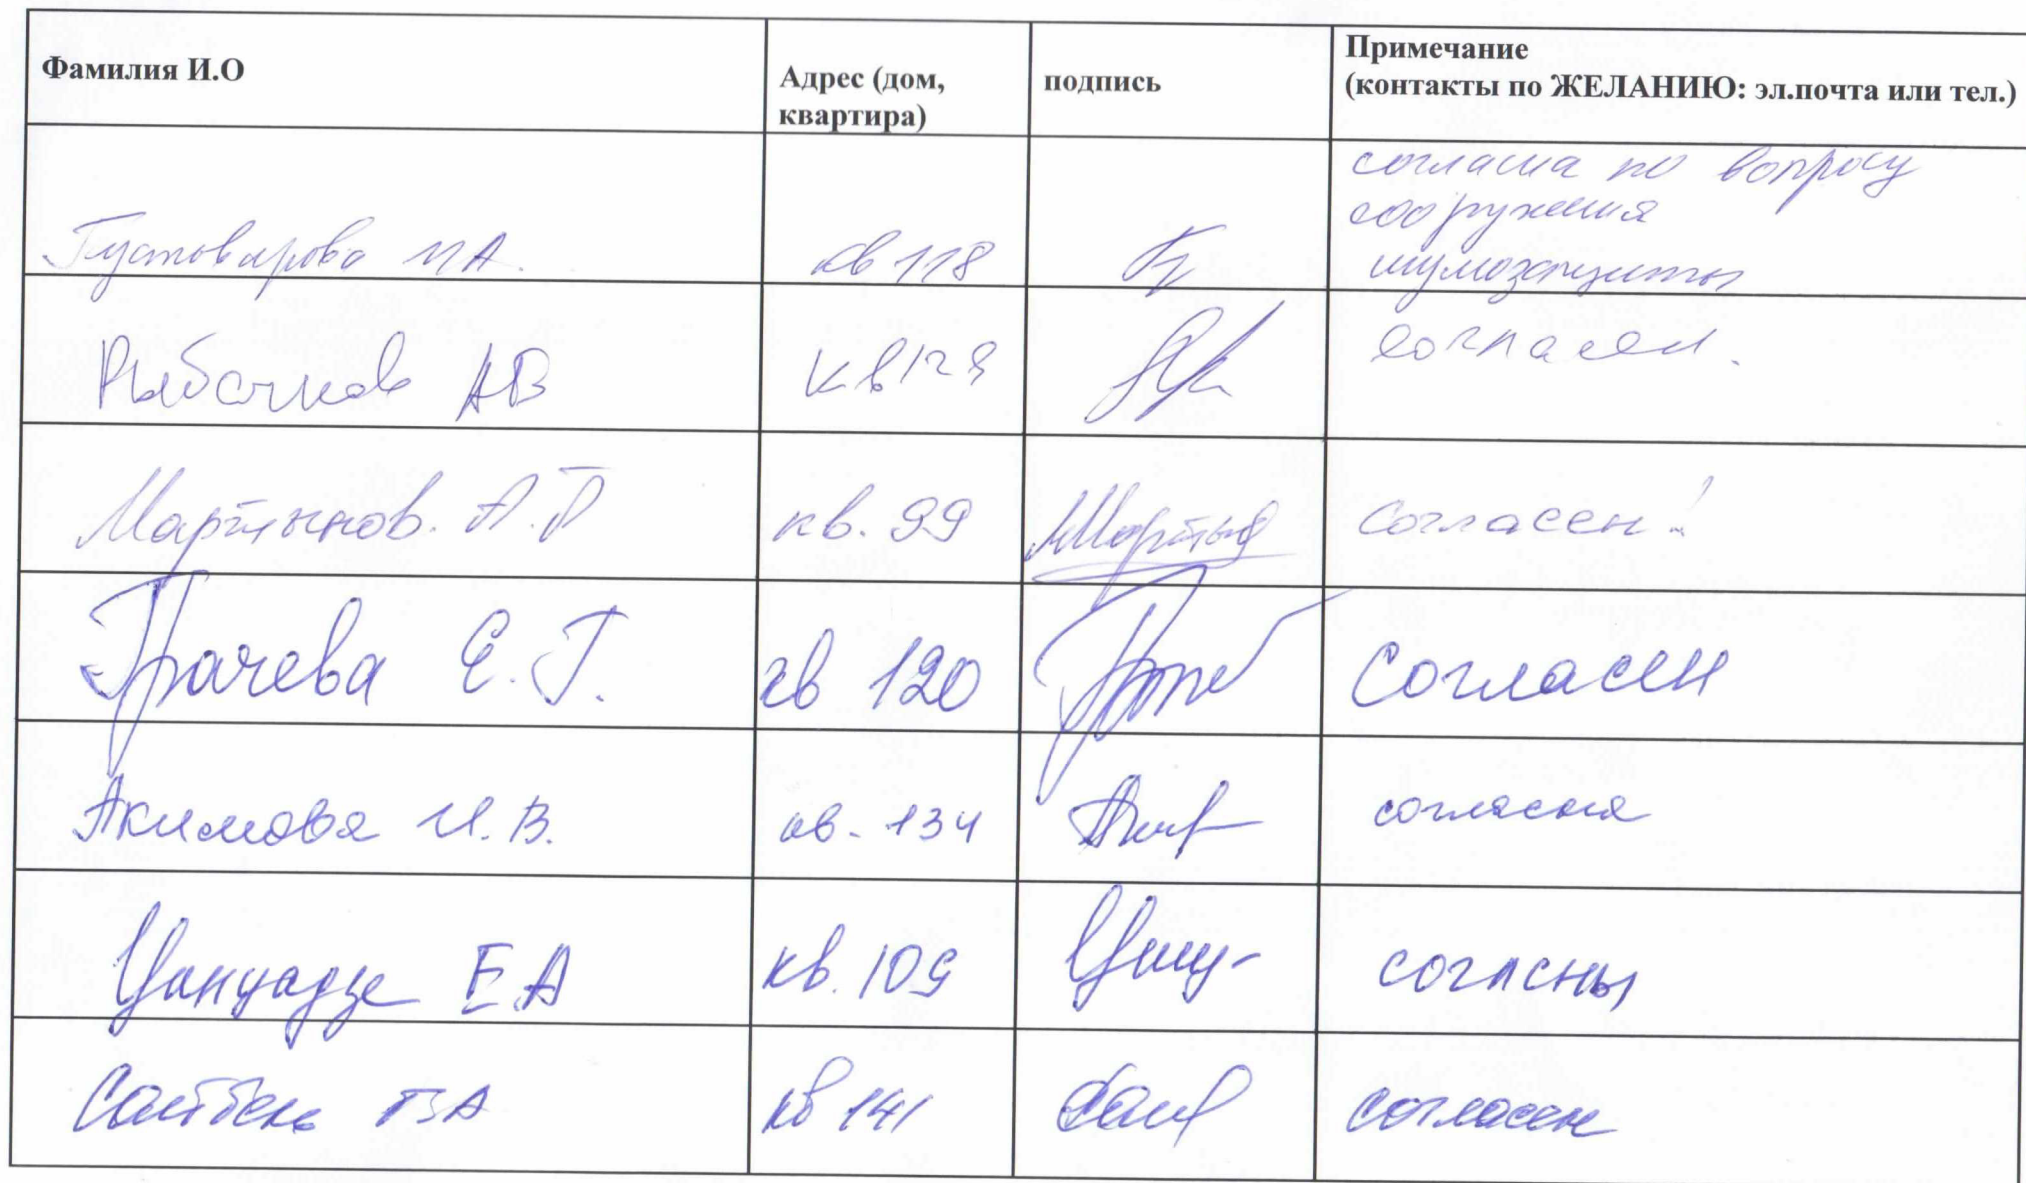 Фамилия И.О
Адрес (дом,
квартира)
подпись
Примечание
(контакты по ЖЕЛАНИЮ: эл.почта или тел.)
согласна по вопросу
сооружения
шумозащиты
кв 118
Рыбочков АВ
кв 129
согласен.
Мартынов. А.П
кв. 99
согласен!
Грачева Е.Г.
кв 120
согласен
Акимова И.В.
кв. 134
согласна
Цануадзе Е.А
кв. 109
согласны
кв 141
согласен